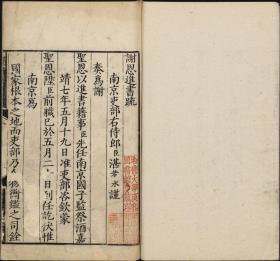 謝恩進書疏
南京吏部右侍郎臣湛若水謹
奏為謝
聖恩以進書籍事臣先任南京國子監祭酒嘉
靖七年五月十九日准吏部咨欽蒙
聖恩陞臣前職已於五月二日到任訖伏惟
南京為
國家根本之地而吏部乃人
衡鑑之司銓